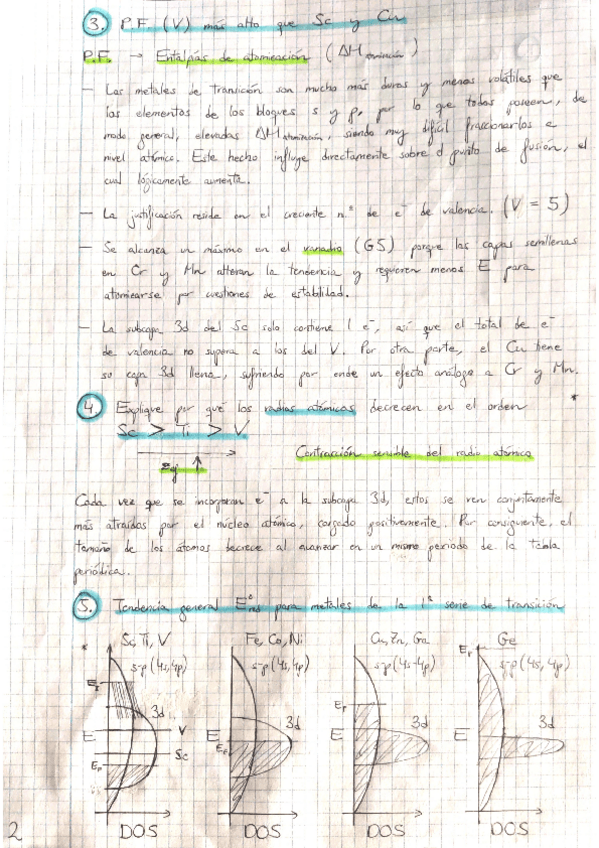 3. P.F. (V) más alto que Sc y Cu
P.F. → Entalpías de atomización (ΔH atomización)
— Los metales de transición son mucho más duros y menos volátiles que
los elementos de los bloques s y p, por lo que todos poseen, de
modo general, elevadas ΔH atomización, siendo muy difícil fraccionarlos a
nivel atómico. Este hecho influye directamente sobre el punto de fusión, el
cual lógicamente aumenta.
— La justificación reside en el creciente n.º de e⁻ de valencia. (V = 5)
— Se alcanza un máximo en el vanadio (G5) porque las capas semillenas
en Cr y Mn alteran la tendencia y requieren menos E para
atomizarse por cuestiones de estabilidad.
— La subcapa 3d del Sc solo contiene 1 e⁻, así que el total de e⁻
de valencia no supera a los del V. Por otra parte, el Cu tiene
su capa 3d llena, sufriendo por ende un efecto análogo a Cr y Mn.
4 Explique por qué los radios atómicos decrecen en el orden *
Sc > Ti > V
↑
Contracción sensible del radio atómico
Cada vez que se incorporan e⁻ a la subcapa 3d, estos se ven conjuntamente
más atraídos por el núcleo atómico, cargado positivamente. Por consiguiente, el
tamaño de los átomos decrece al avanzar en un mismo periodo de la tabla
periódica.
5. Tendencia general E° para metales de la 1ª serie de transición
* Sc, Ti, V Fe, Co, Ni Cu, Zn, Ga Ge
s-p (4s, 4p) s-p (4s, 4p) s-p (4s-4p) EF s-p (4s, 4p)
EF
3d 3d 3d 3d
V
E E E E
Sc
EF EF
DOS DOS DOS DOS
2